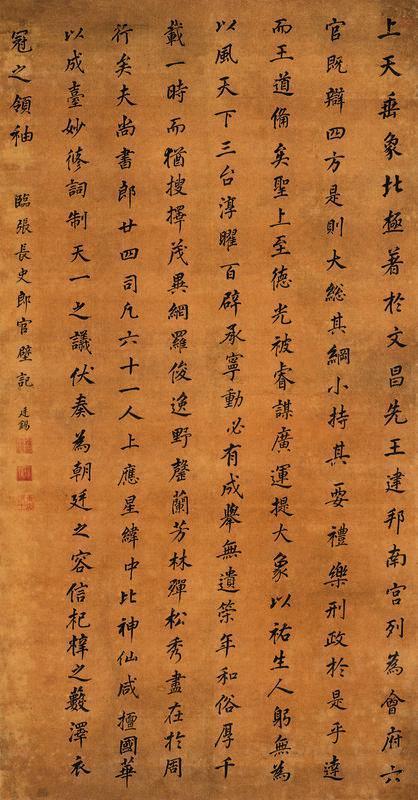 上天垂象北極著於文昌先王建邦南宮列為會府六
官既辯四方是則大総其綱小持其要禮樂刑政於是乎達
而王道備矣聖上至德光被睿謀廣運提大象以祐生人躬無為
以風天下三台淳曜百辟承寧動必有成舉無遺筞年和俗厚千
載一時而猶搜擇茂異網羅俊逸野罄蘭芳林殫松秀盡在於周
行矣夫尚書郎廿四司凡六十一人上應星緯中比神仙咸擅國華
以成臺妙修詞制天一之議伏奏為朝廷之容信杞梓之藪澤衣
冠之領袖
臨張長史郎官壁記
廷錫